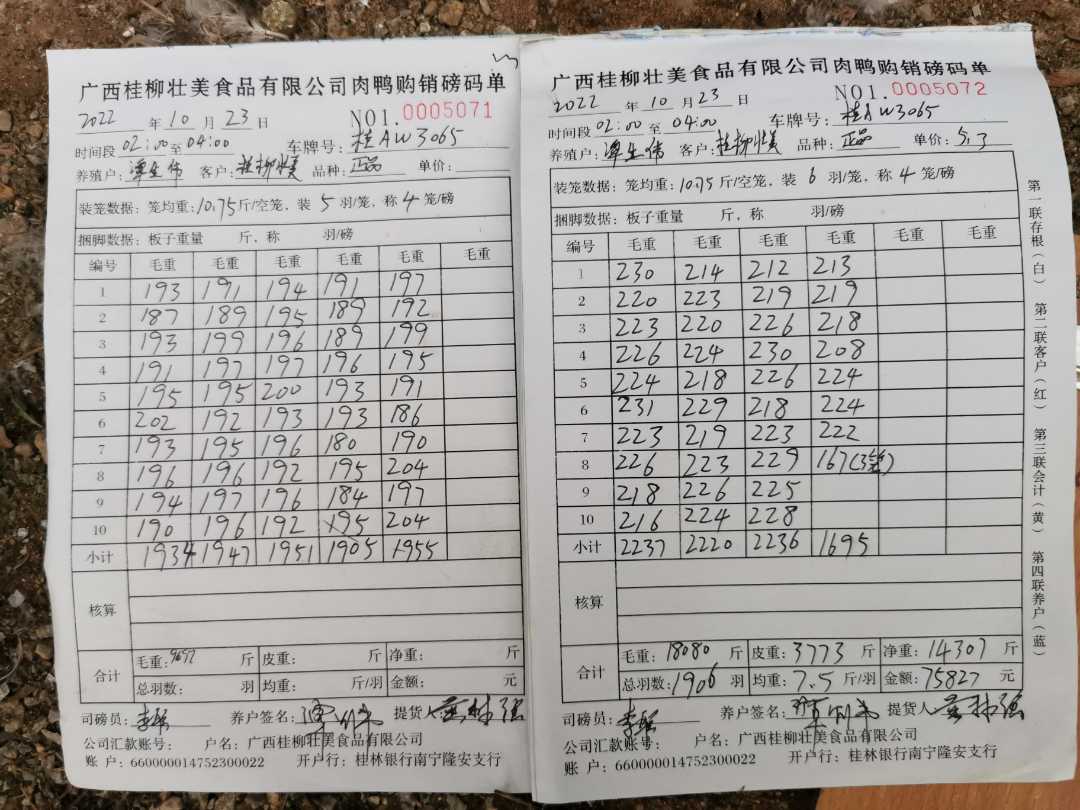 广西桂柳壮美食品有限公司肉鸭购销磅码单
2022 年 10 月 23 日 NO1. 0005071
时间段 02:00 至 04:00 车牌号: 桂AW3065
养殖户: 客户: 桂柳壮美 品种: 正品 单价:
装笼数据: 笼均重: 10.75 斤/空笼, 装 5 羽/笼, 称 4 笼/磅
捆脚数据: 板子重量 斤, 称 羽/磅
编号 毛重 毛重 毛重 毛重 毛重 毛重
1 193 191 194 191 197
2 187 189 195 189 192
3 193 199 196 189 199
4 191 197 197 196 195
5 195 195 200 193 191
6 202 192 193 193 186
7 193 195 196 180 190
8 196 196 192 195 204
9 194 197 196 184 197
10 190 196 192 195 204
小计 1934 1947 1951 1905 1955
核算
合计 毛重: 9692 斤 皮重: 斤 净重: 斤
总羽数: 羽 均重: 斤/羽 金额: 元
司磅员: 养户签名: 提货人
公司汇款账号: 户名: 广西桂柳壮美食品有限公司
账户: 660000014752300022 开户行: 桂林银行南宁隆安支行
广西桂柳壮美食品有限公司肉鸭购销磅码单
2022 年 10 月 23 日 NO1. 0005072
时间段 02:00 至 04:00 车牌号: 桂AW3065
养殖户: 客户: 桂柳壮美 品种: 正品 单价: 5.3
装笼数据: 笼均重: 10.75 斤/空笼, 装 6 羽/笼, 称 4 笼/磅
捆脚数据: 板子重量 斤, 称 羽/磅
编号 毛重 毛重 毛重 毛重 毛重 毛重
1 230 214 212 213
2 220 223 219 219
3 223 220 226 218
4 226 224 230 208
5 224 218 226 224
6 231 229 218 224
7 223 219 223 222
8 226 223 229 167(3笼)
9 218 226 225
10 216 224 228
小计 2237 2220 2236 1695
核算
合计 毛重: 18080 斤 皮重: 3773 斤 净重: 14307 斤
总羽数: 1906 羽 均重: 7.5 斤/羽 金额: 75827 元
司磅员: 养户签名: 提货人
公司汇款账号: 户名: 广西桂柳壮美食品有限公司
账户: 660000014752300022 开户行: 桂林银行南宁隆安支行
第一联存根(白) 第二联客户(红) 第三联会计(黄) 第四联养户(蓝)